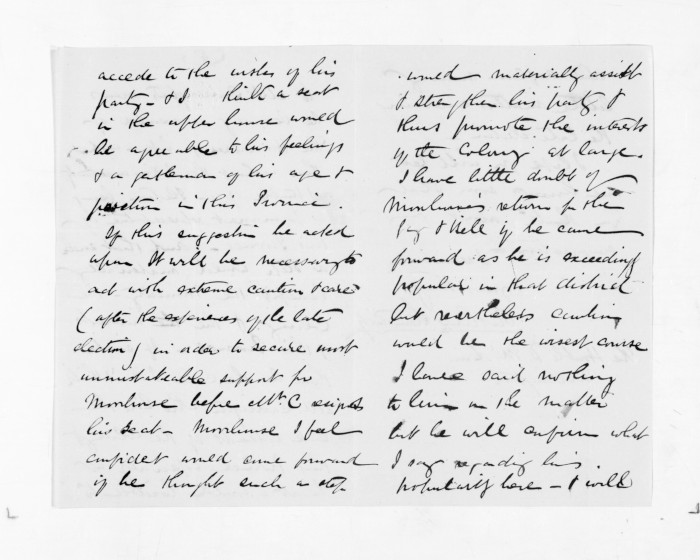 accede to the wishes of his
party - & I think a seat
in the upper house would
be agreeable to his feelings
& a gentleman of his age &
position in this Province.
If this suggestion be acted
upon it will be necessary to
act with extreme caution & care
(after the experiences of the late
election) in order to secure most
unmistakeable support for
Moorhouse before Mr. C resigns
his seat - Moorhouse I feel
confident would come forward
if he thought such a step
would materially assist
& strengthen his party &
thus promote the interests
of the Colony at large.
I have little doubt of
Moorhouse's return for the
if he came
forward as he is exceedingly
popular in that district
but nevertheless caution
would be the wisest course
I have said nothing
to him on the matter
but he will confirm what
I say regarding his
popularity here - & will